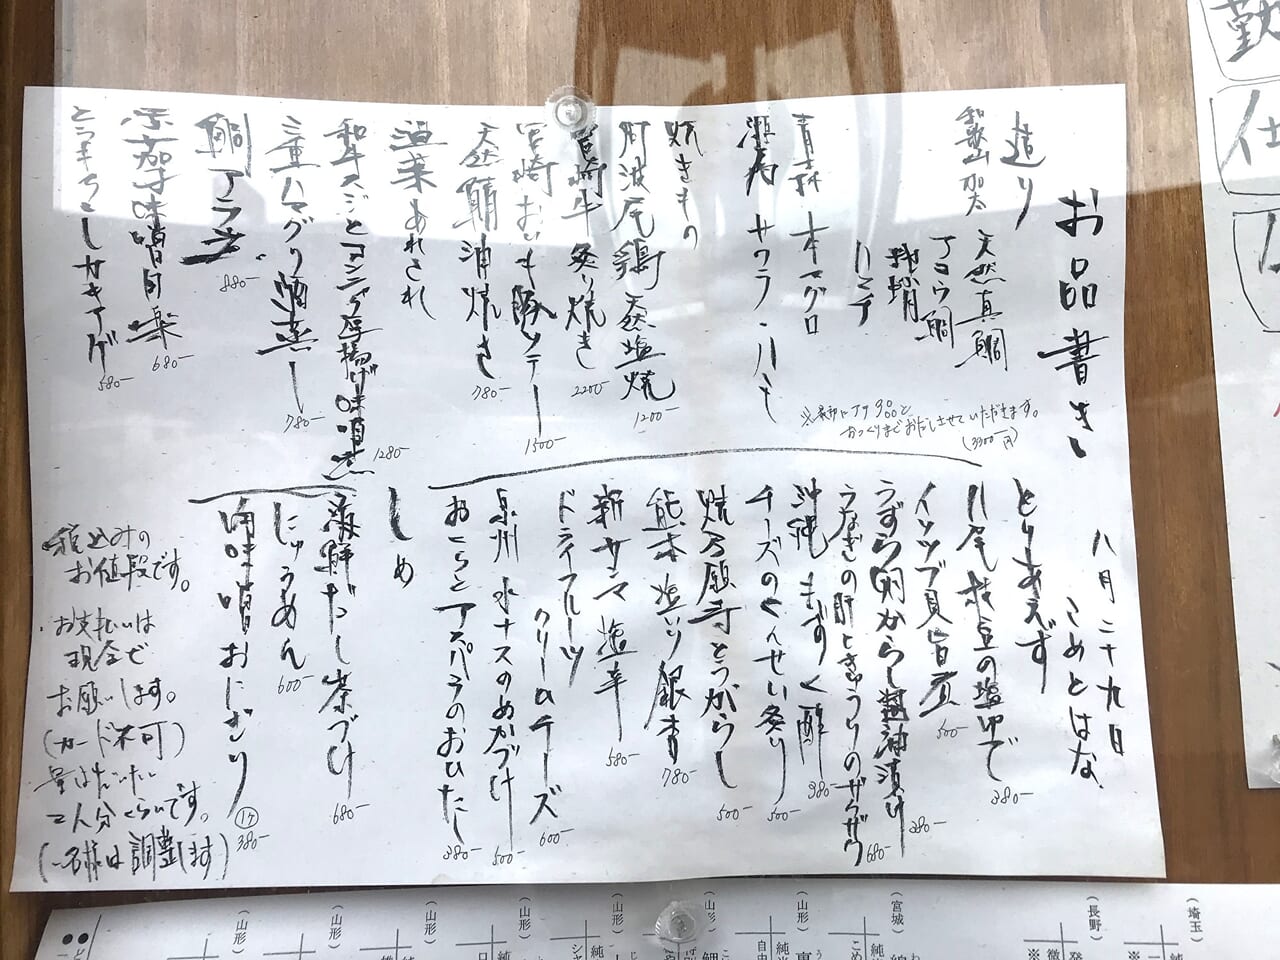 お品書き
八月二十九日
こめとはな
造り
和歌山 加太 天然真鯛
アコウ鯛
ハマチ
青森 本マグロ
サワラ・ハモ
焼きもの
阿波尾鶏 天然塩焼 1200-
宮崎牛 炙り焼き 2200-
宮崎おいも豚ソテー 1500-
天然鯖 油焼き 780-
温菜あれこれ
和牛スジとコンニャク厚揚げ味噌煮 1280-
三重ハマグリ酒蒸し 780-
鯛アラ 880-
味噌田楽 680-
とうもろこしカキアゲ 580-
おつくりまでおだしさせていただきます。
(3300円)
とりあえず
八尾枝豆の塩ゆで 380-
イソツブ貝旨煮 500-
うずら卵からし醤油漬け 280-
うなぎの肝ときゅうりのザクザク 680-
沖縄もずく酢 380-
チーズのくんせい炙り 500-
焼万願寺とうがらし 500-
熊本塩いり銀杏 780-
新サンマ塩辛 580-
ドライフルーツ
クリームチーズ 600-
泉州 水ナスのぬかづけ 500-
おくらとアスパラのおひたし 380-
しめ
海鮮だし茶づけ 680-
にゅうめん 600-
味噌おにぎり 1ケ 380-
税込みの
お値段です。
お支払いは
現金で
お願いします。
(カード不可)
量はだいたい
2人分くらいです。
(一名様は調整します)
勤
仕
(山形)
(山形)
(山形)
(山形)
(山形)
(山形)
(山形)
(宮城)
(長野)
(埼玉)